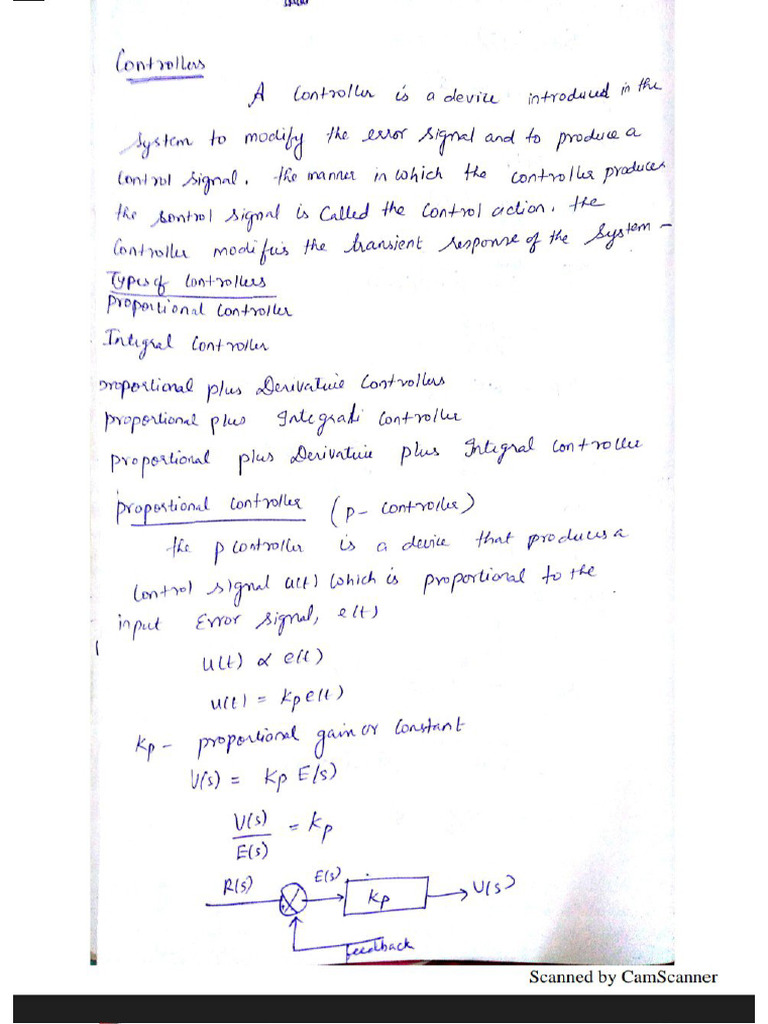 Controllers
A Controller is a device introduced in the
System to modify the error signal and to produce a
control signal. the manner in which the controller produces
the sontrol signal is called the control action. the
Controller modifies the transient response of the System -
Types of Controllers
proportional controller
Integral Controller
proportional plus Derivative Controllers
proportional plus Integrali controller
proportional plus Derivative plus Integral controller
proportional controller (p- controller)
the p controller is a device that produces a
Control signal u(t) which is proportional to the
input Error signal, e(t)
u(t) ∝ e(t)
u(t) = kp e(t)
kp - proportional gain or constant
U(s) = kp E(s)
U(s)
= kp
E(s)
R(s) E(s) kp U(s)
feedback
Scanned by CamScanner